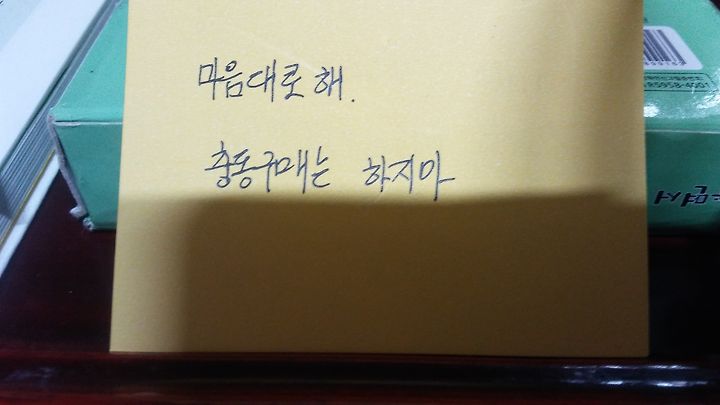 마음대로해.
충동구매는 하지마